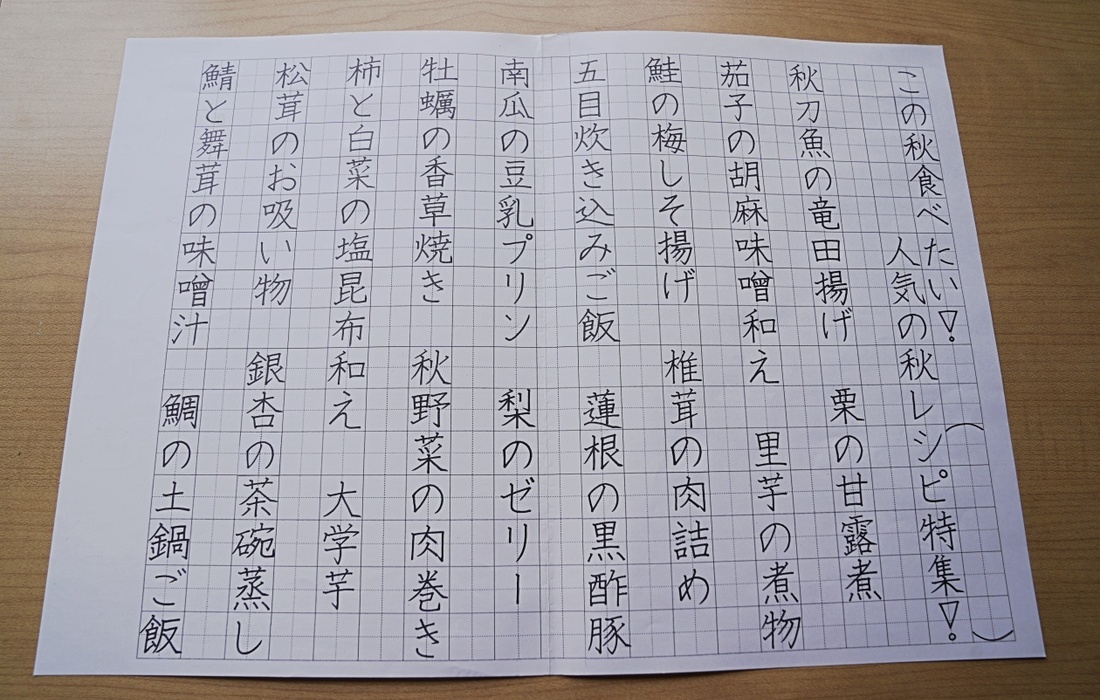 この秋食べたい！（　）
人気の秋レシピ特集！
秋刀魚の竜田揚げ　栗の甘露煮
茄子の胡麻味噌和え　里芋の煮物
鮭の梅しそ揚げ　椎茸の肉詰め
五目炊き込みご飯　蓮根の黒酢豚
南瓜の豆乳プリン　梨のゼリー
牡蠣の香草焼き　秋野菜の肉巻き
柿と白菜の塩昆布和え　大学芋
松茸のお吸い物　銀杏の茶碗蒸し
鯖と舞茸の味噌汁　鯛の土鍋ご飯